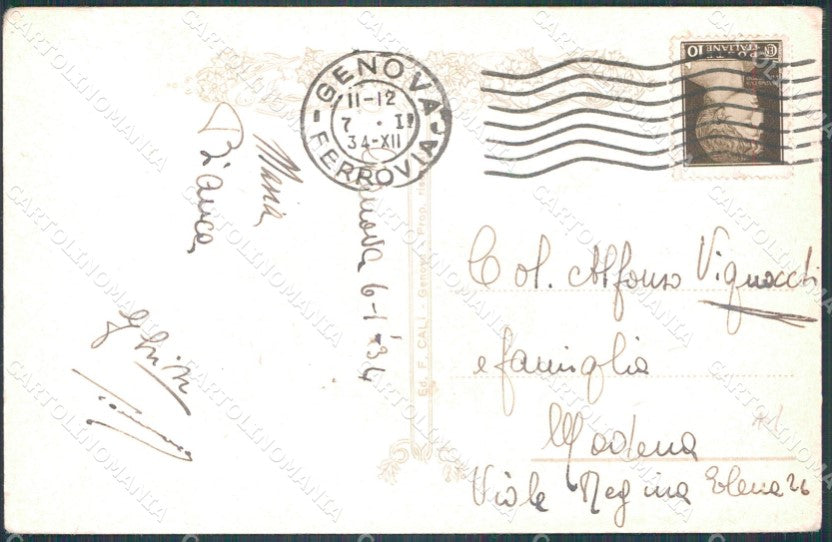 GENOVA
FERROVIA
11-12
7 · I
34-XII
POSTE ITALIANE 10
Genova 6-1-'34
Maria
Bianca
Col. Alfonso Vignocchi
e famiglia
Modena
Viale Regina Elena 26
Ed. F. CALÌ - Genova - Prop. ris.
CARTOLINOMANIA